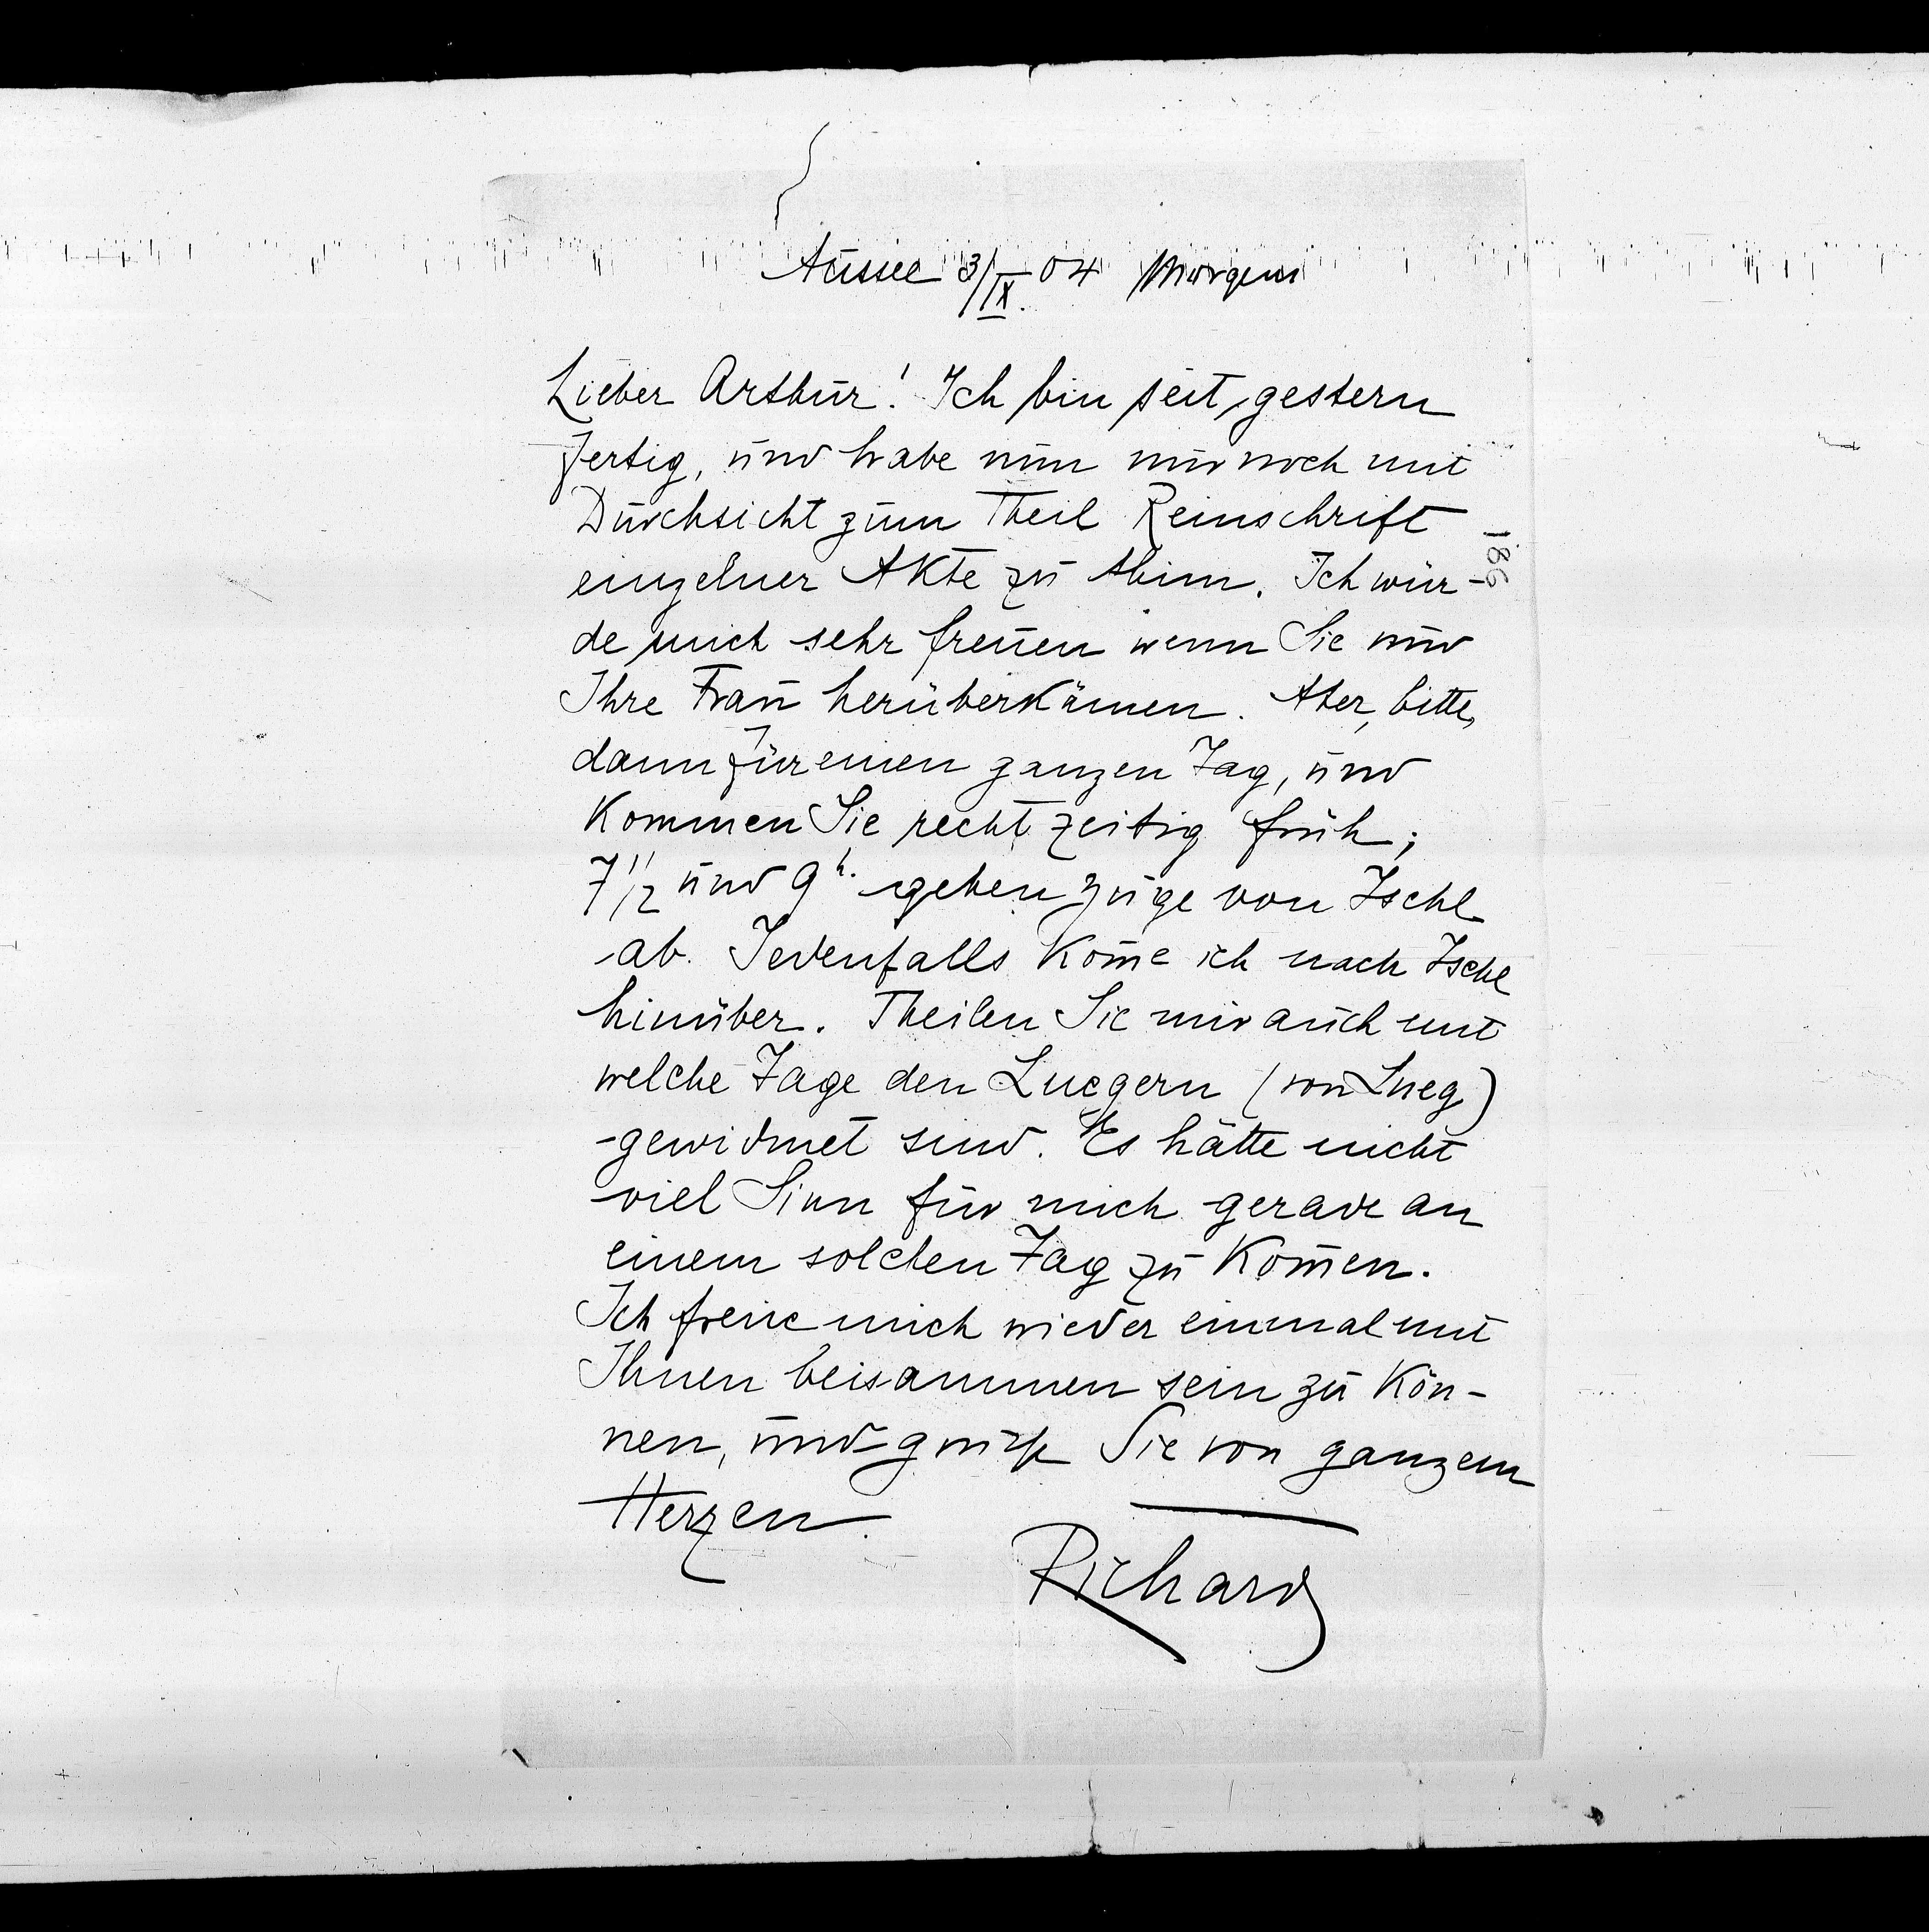 Aussee 3/IX. 04 Morgens
Lieber Arthur! Ich bin seit gestern
fertig, und habe nun nur noch mit
Durchsicht zum Theil Reinschrift
einzelner Akte zu thun. Ich wür-
186
de mich sehr freuen wenn Sie und
Ihre Frau herüberkämen. Aber, bitte,
dann für einen ganzen Tag, und
kommen Sie recht zeitig früh;
7 1/2 und 9h. gehen Züge von Ischl
ab. Jedenfalls kom̄e ich nach Ischl
hinüber. Theilen Sie mir auch mit
welche Tage den Luegern (von Lueg)
gewidmet sind. Es hätte nicht
viel Sinn für mich gerade an
einem solchen Tag zu kom̄en.
Ich freue mich wieder einmal mit
Ihnen beisammen sein zu kön-
nen, und grüße Sie von ganzem
Herzen.
Richard